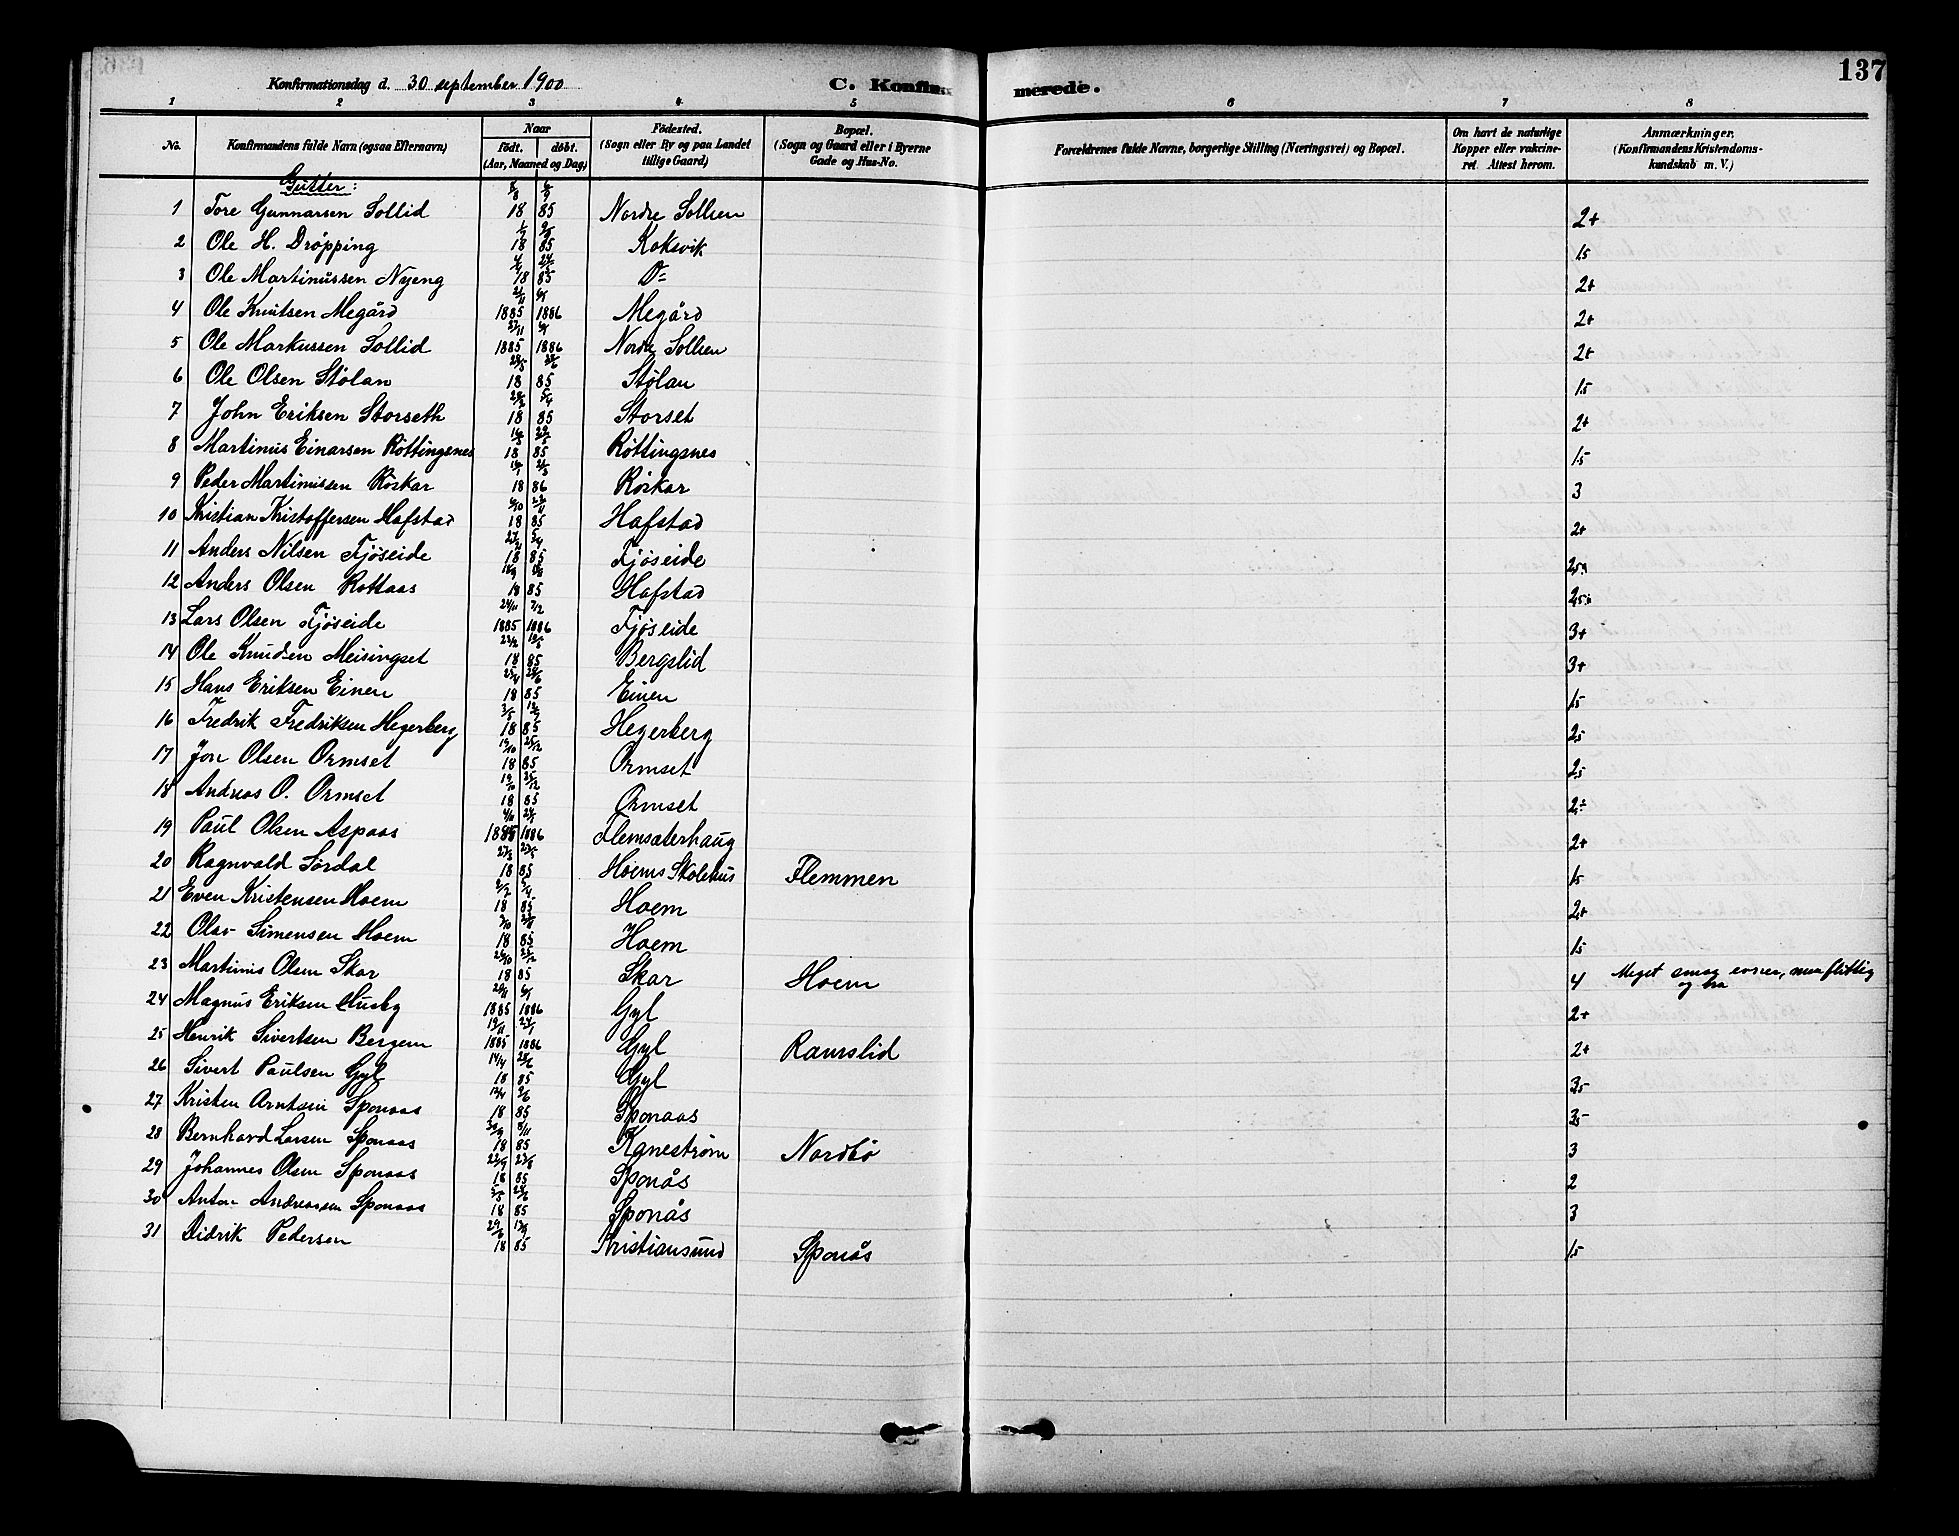 137
Konfirmationsdag d. 30 september 1900
C. Konfir merede.
1 2 3 4 5 6 7 8
No. Konfirmandens fulde Navn (ogsaa Efternavn) Naar født. døbt. (Aar, Maaned og Dag) Fødested. (Sogn eller By og paa Landet tillige Gaard) Bopæl. (Sogn og Gaard eller i Byerne Gade og Hus-No. Forældrenes fulde Navne, borgerlige Stilling (Næringsvei) og Bopæl. Om havt de naturlige Kopper eller vakcineret. Attest herom. Anmærkninger. (Konfirmandens Kristendomskundskab m. V.)
Gutter:
1 Tore Gunnarsen Sollid 18 85 Nordre Sollien 2+
2 Ole H. Drøpping 18 85 Koksvik 1.5
3 Ole Martinussen Nyeng 18 85 D= 2+
4 Ole Knutsen Megård 1885 1886 Megård 2+
5 Ole Markussen Sollid 27/11 1885 1886 Nordre Sollien 2+
6 Ole Olsen Stølan 18 85 Stølan 1.5
7 John Eriksen Storseth 18 85 Storset 2+
8 Martinus Einarsen Røttingsnes 18 85 Røttingsnes 1.5
9 Peder Martinussen Röskar 18 86 Röskar 3
10 Kristian Kristoffersen Hafstad 18 85 Hafstad 2+
11 Anders Nilsen Fjøseide 18 85 Fjøseide
12 Anders Olsen Rottaas 18 85 Hafstad
13 Lars Olsen Fjøseide 24/11 7/2 1885 1886 Fjøseide 3+
14 Ole Knudsen Meisingset 18 85 Bergslid 3+
15 Hans Eriksen Einen 18 85 Einen 1.5
16 Fredrik Fredriksen Hegerberg 18 85 Hegerberg 2.5
17 Jon Olsen Ormset 19/10 25/12 18 85 Ormset 2.5
18 Andreas O. Ormset 19/10 25/12 18 85 Ormset 2÷
19 Paul Olsen Aspaas 1885 1886 Flemsæterhaug 2+
20 Ragnvald Sørdal 18 85 Hoems Skolehus Flemmen 1.5
21 Even Kristensen Hoem 18 85 Hoem 2+
22 Olav Simensen Hoem 18 85 Hoem 1.5
23 Martinus Olsen Skar 18 85 Skar Hoem 4 Meget smaa evner, men flittig og bra
24 Magnus Eriksen Husby 1885 1886 Gyl 2+
25 Henrik Sivertsen Bergem 19/11 24/1 1885 1886 Gyl Ramslid 2+
26 Sivert Paulsen Gyl 18 85 Gyl 3.5
27 Kristen Arntsen Sponaas 18 85 Sponaas 3.5
28 Bernhard Larsen Sponaas 18 85 Kanestrøm Nordbø 3
29 Johannes Olsen Sponaas 18 85 Sponås 2
30 Anton Andreassen Sponaas 18 85 Sponås 3
31 Didrik Pedersen 18 85 Kristiansund Sponås 1.5